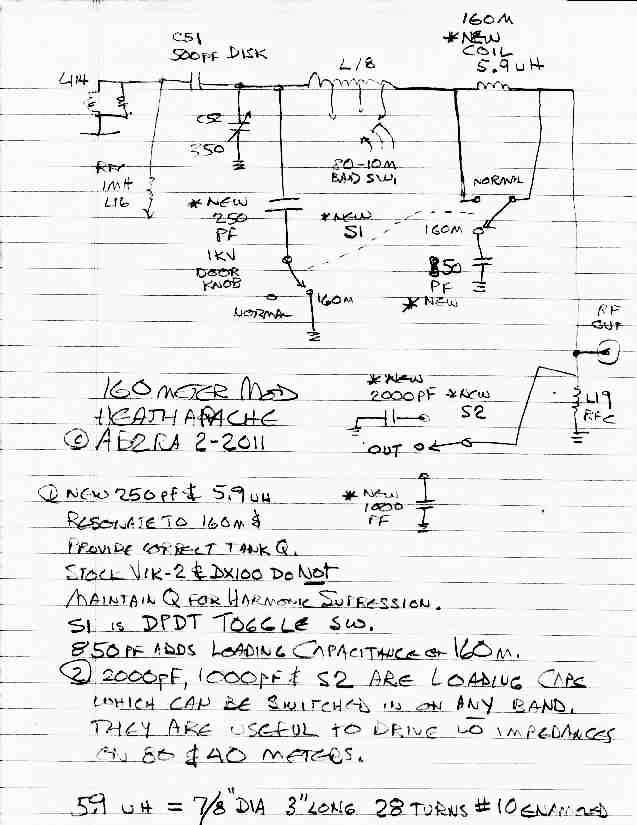 160M
*NEW
COIL
5.9UH
C51
500PF DISK
L18
L14
C52
350
80-10M
BAND SW.
RFC
1MH
L16
*NEW
250
PF
1KV
DOOR
KNOB
*NEW
S1
NORMAL
160M
850
PF
*NEW
160M
NORMAL
RF
OUT
160 METER MOD
HEATH APACHE
© AE2RA 2-2011
*NEW
2000PF *NEW
S2
OUT
L19
RFC
*NEW
1000
PF
① NEW 250PF & 5.9UH
RESONATE TO 160M &
PROVIDE CORRECT TANK Q.
STOCK VIK-2 & DX100 DO NOT
MAINTAIN Q FOR HARMONIC SUPRESSION.
S1 IS DPDT TOGGLE SW.
850PF ADDS LOADING CAPACITANCE ON 160M.
② 2000PF, 1000PF & S2 ARE LOADING CAPS
WHICH CAN BE SWITCHED IN ON ANY BAND.
THEY ARE USEFUL TO DRIVE LO IMPEDANCES
ON 80 & 40 METERS.
5.9 UH = 7/8" DIA 3" LONG 28 TURNS #10 ENAMELED